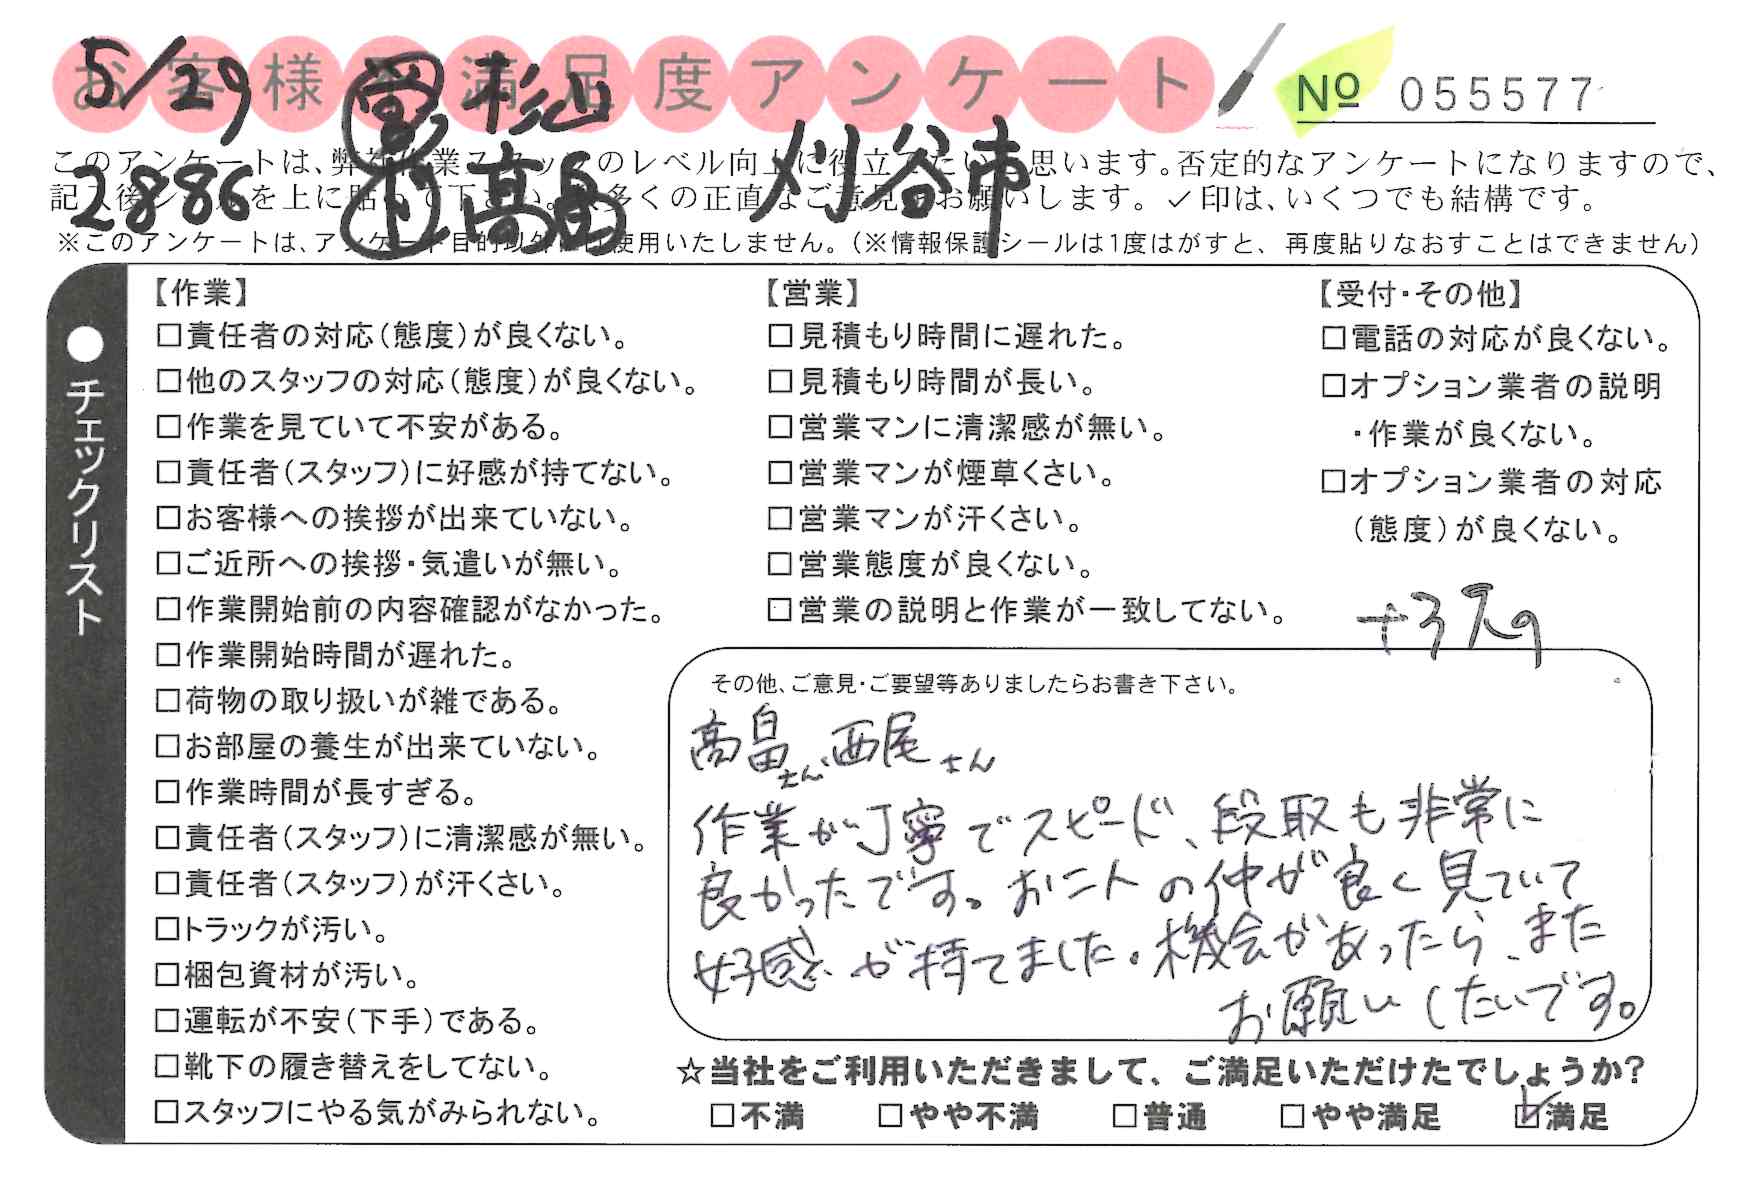 お客様 満足度アンケート
5/29 営 杉山
№ 055577
2886 高畠 刈谷市
このアンケートは、弊社作業スタッフのレベル向上に役立てたいと思います。否定的なアンケートになりますので、
記入後シールを上に貼って下さい。 多くの正直なご意見をお願いします。✓印は、いくつでも結構です。
※このアンケートは、アンケート目的以外には使用いたしません。（※情報保護シールは1度はがすと、再度貼りなおすことはできません）
●チェックリスト
【作業】
□責任者の対応（態度）が良くない。
□他のスタッフの対応（態度）が良くない。
□作業を見ていて不安がある。
□責任者（スタッフ）に好感が持てない。
□お客様への挨拶が出来ていない。
□ご近所への挨拶・気遣いが無い。
□作業開始前の内容確認がなかった。
□作業開始時間が遅れた。
□荷物の取り扱いが雑である。
□お部屋の養生が出来ていない。
□作業時間が長すぎる。
□責任者（スタッフ）に清潔感が無い。
□責任者（スタッフ）が汗くさい。
□トラックが汚い。
□梱包資材が汚い。
□運転が不安（下手）である。
□靴下の履き替えをしてない。
□スタッフにやる気がみられない。
【営業】
□見積もり時間に遅れた。
□見積もり時間が長い。
□営業マンに清潔感が無い。
□営業マンが煙草くさい。
□営業マンが汗くさい。
□営業態度が良くない。
□営業の説明と作業が一致してない。
【受付・その他】
□電話の対応が良くない。
□オプション業者の説明
・作業が良くない。
□オプション業者の対応
（態度）が良くない。
その他、ご意見・ご要望等ありましたらお書き下さい。
高畠さん、西尾さん
作業が丁寧でスピード、段取も非常に
良かったです。お二人の仲が良く見ていて
好感が持てました。機会があったら、また
お願いしたいです。
☆当社をご利用いただきまして、ご満足いただけたでしょうか?
□不満 □やや不満 □普通 □やや満足 ☑満足